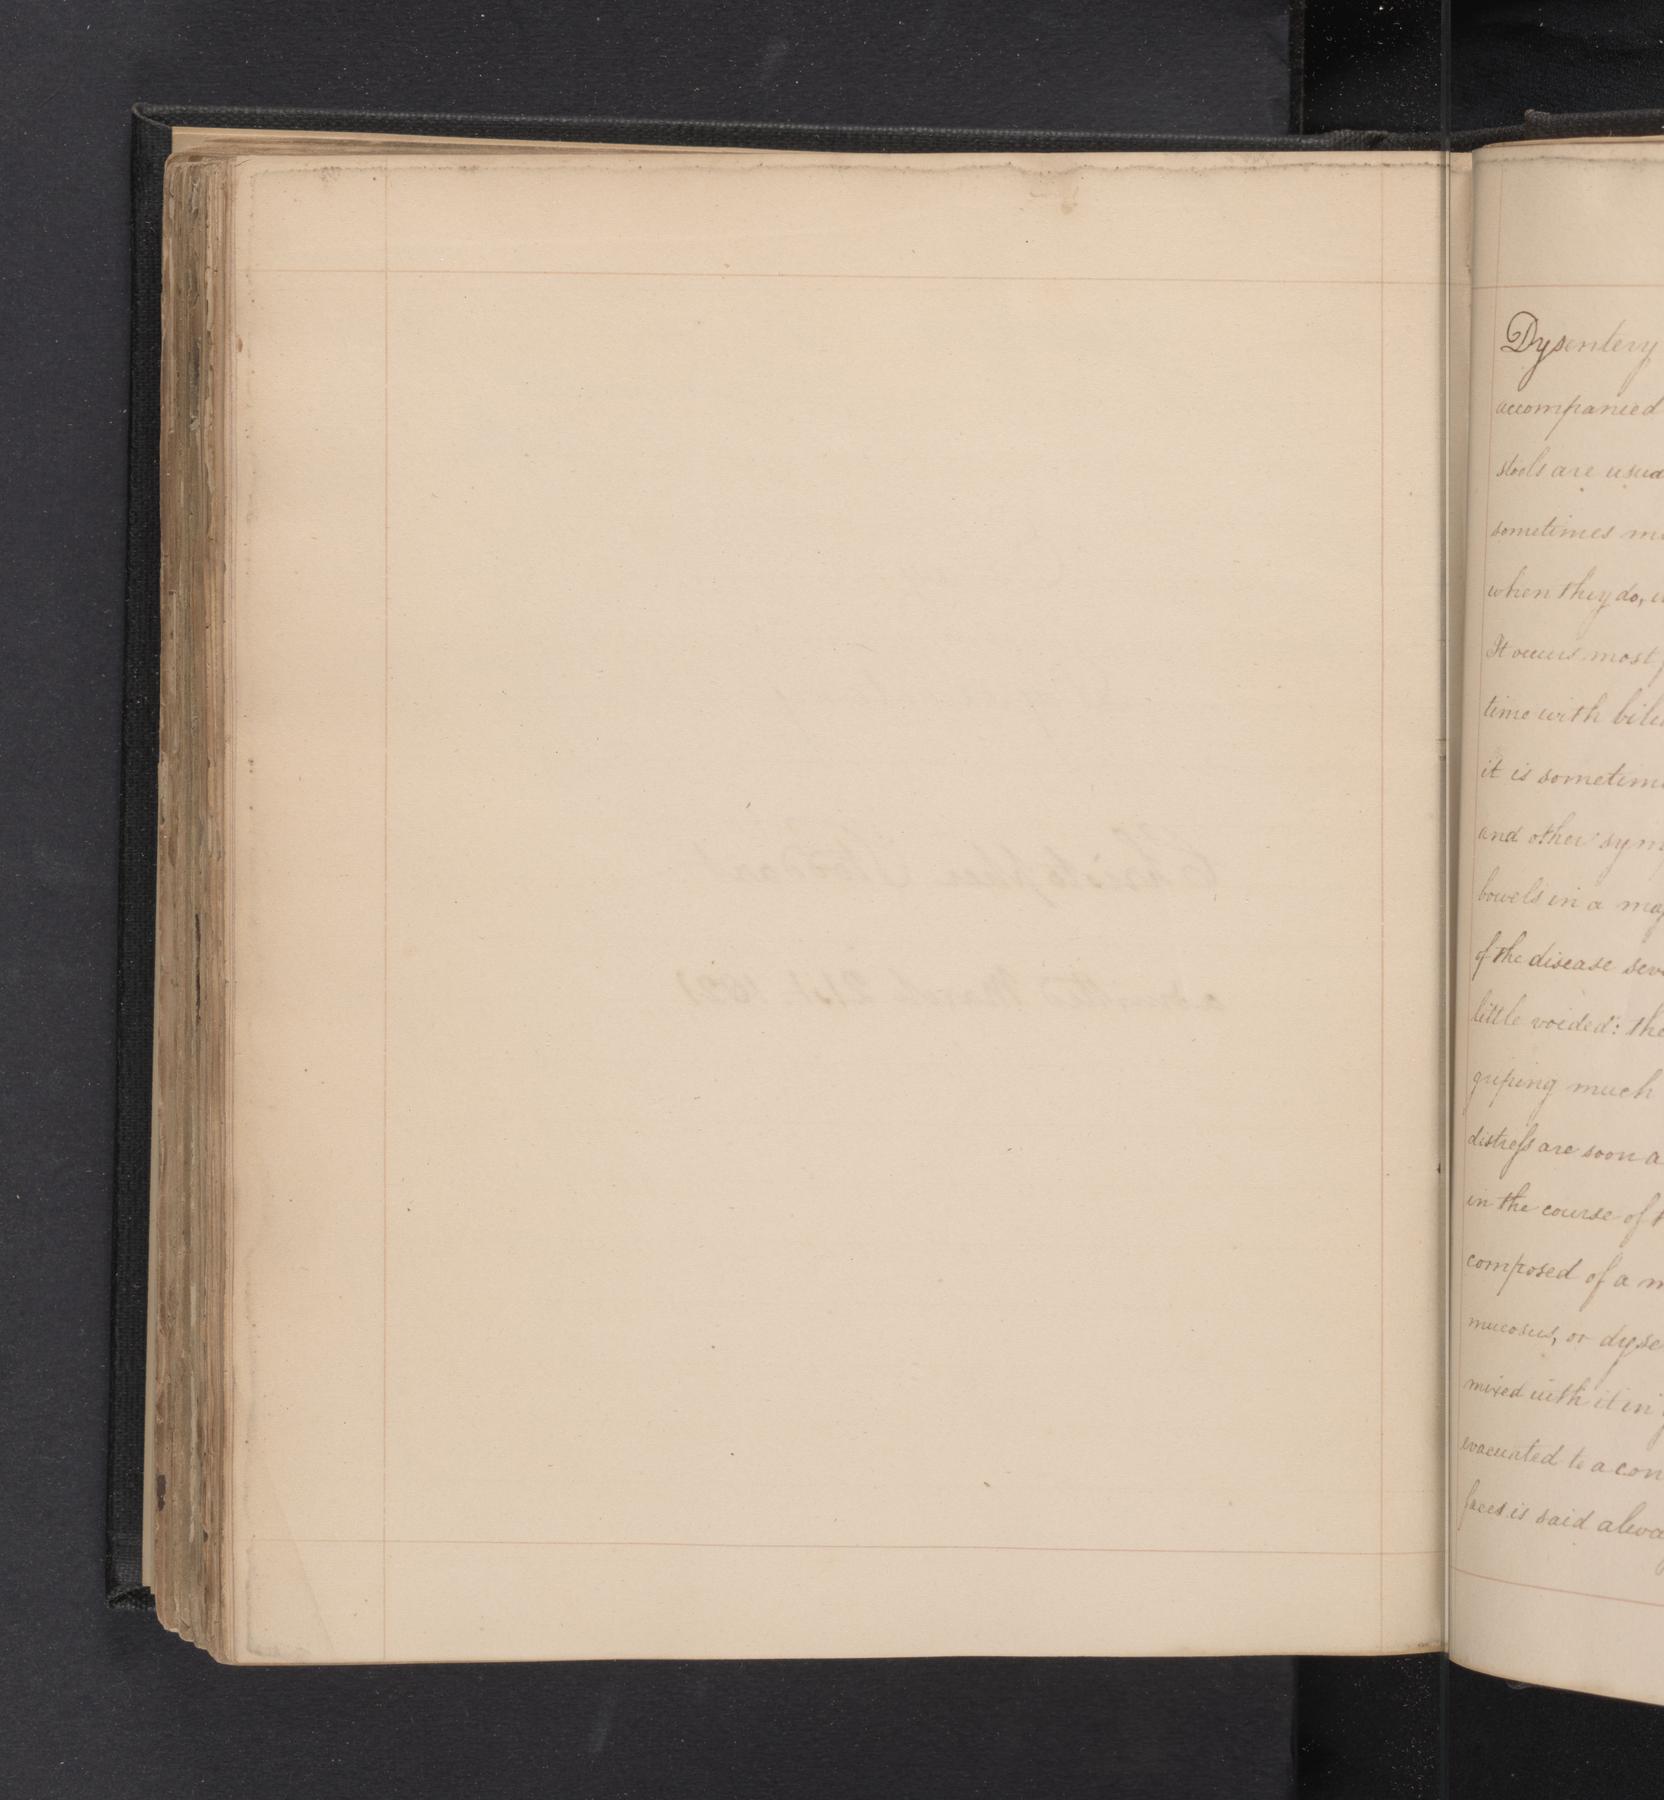 Dysentery
accompanied
stools are usua
sometimes mo
when they do, u
It occurs most
time with bili
it is sometime
and other symp
bowels in a ma
of the disease seve
little voided: the
griping much
distress are soon a
in the course of t
composed of a m
mucosus, or dyse
mixed with it in
evacuated to a con
faces is said alwa